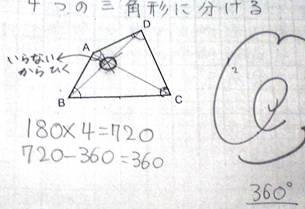 4つの三角形に分ける
D
A
いらない
からひく
B
C
180×4=720
720-360=360
360°